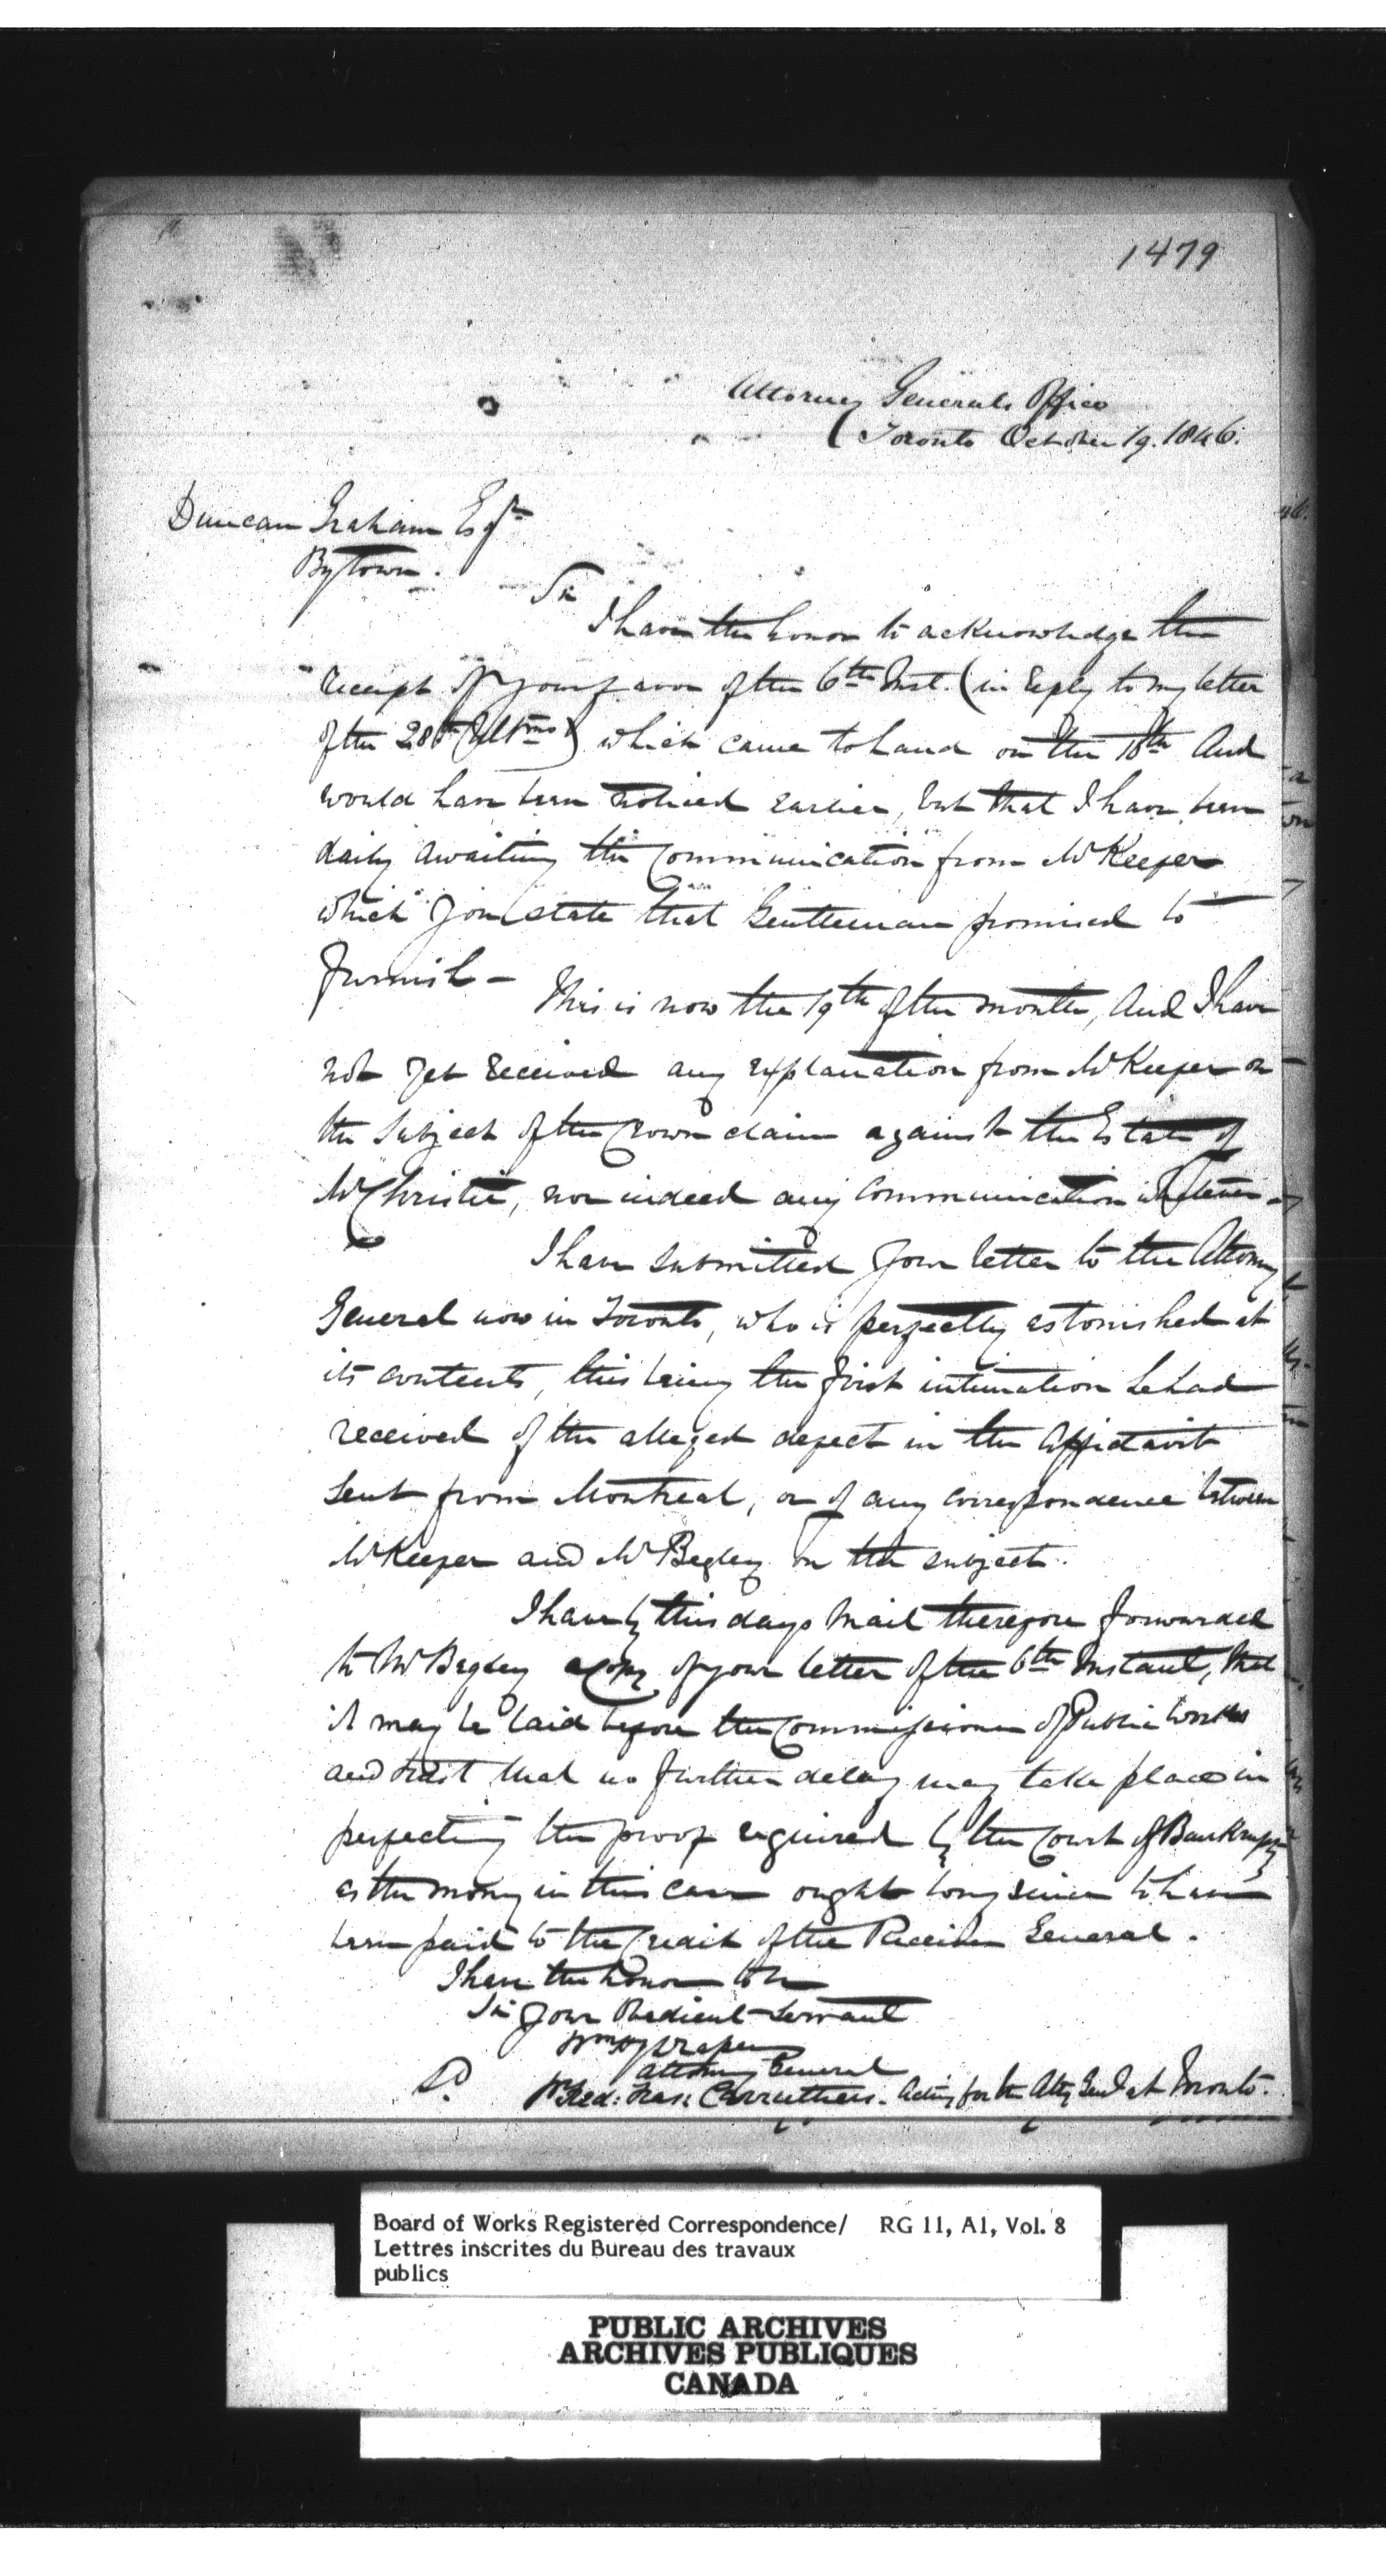 1479
Attorney Generals Office
Toronto October 19. 1846.
Duncan Graham Esqre
Bytown.
Sir
I have the honor to acknowledge the
receipt of your favor of the 6th Inst. (in reply to my letter
of the 28th Ultmo) which came to hand on the 10th And
would have been noticed earlier, but that I have been
daily awaiting the Communication from Mr Keefer
which you state that Gentleman promised to
furnish -
This is now the 19th of the month, And I have
not yet received any explanation from Mr Keefer on
the subject of the Crown claim against the Estate of
Mr Christie, nor indeed any communication whatever -
I have submitted your letter to the Attorney
General now in Toronto, who is perfectly astonished at
its contents, this being the first intimation he had
received of the alleged defect in the Affidavit
sent from Montreal, or of any correspondence between
Mr Keefer and Mr Begley on the subject.
I have by this days Mail therefore forwarded
to Mr Begley a copy of your letter of the 6th Instant, that
it may be laid before the Commissioner of Public Works
and trust that no further delay may take place in
perfecting the proof required by the Court of Bankruptcy
as the money in this case ought long since to have
been paid to the Credit of the Receiver General.
I have the honor to be
Sir Your Obedient Servant
Wm H Draper
Attorney General
Carruthers. Acting for the Atty Genl at Toronto.
Board of Works Registered Correspondence/ RG 11, A1, Vol. 8
Lettres inscrites du Bureau des travaux
publics
PUBLIC ARCHIVES
ARCHIVES PUBLIQUES
CANADA